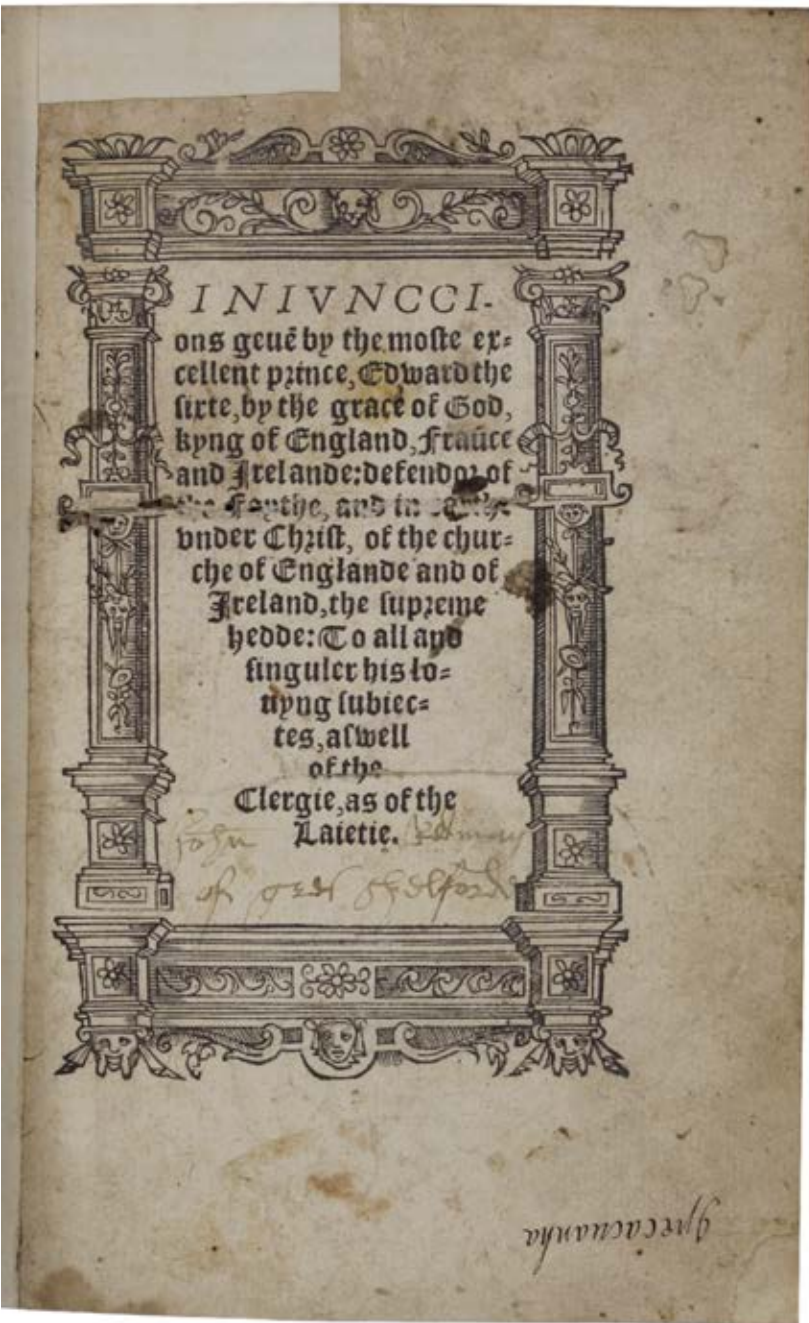 INIVNCCI-
ons geuē by the moste ex-
cellent prince, Edward the
sixte, by the grace of God,
kyng of England, Fraūce
and Irelande: defendor of
the Faythe, and in
vnder Christ, of the chur-
che of Englande and of
Ireland, the supreme
hedde: To all and
singuler his lo-
uyng subiec-
tes, aswell
of the
Clergie, as of the
Laietie.
John
of gret shelforde
Ipecacuanha